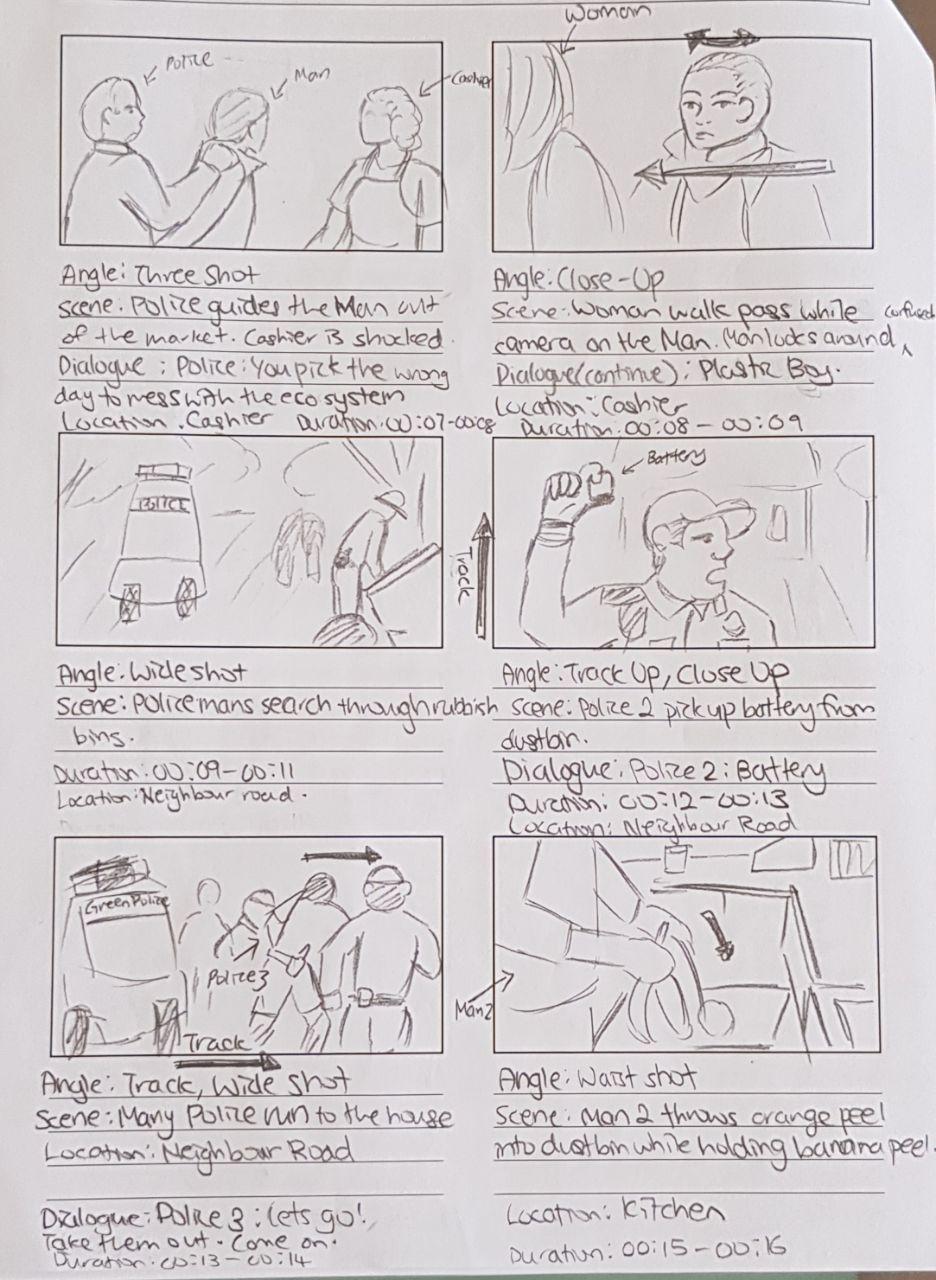 Police
Man
Cashier
Angle: Three Shot
Scene: Police guides the Man out
of the market. Cashier is shocked.
Dialogue : Police: You pick the wrong
day to mess with the eco system
Location : Cashier Duration: 00:07-00:08
Woman
Angle: Close-Up
Scene: Woman walk pass while
camera on the Man. Man looks around, confused
Dialogue (continue) : Plastic Boy.
Location : Cashier
Duration: 00:08 - 00:09
POLICE
Angle: Wide shot
Scene: Policemans search through rubbish
bins.
Duration: 00:09-00:11
Location: Neighbour road.
Track
Battery
Angle: Track Up, Close Up
Scene: Police 2 pick up battery from
dustbin.
Dialogue: Police 2: Battery
Duration: 00:12-00:13
Location: Neighbour Road
Green Police
Police 3
Track
Angle: Track, Wide Shot
Scene: Many Police run to the house
Location: Neighbour Road
Dialogue: Police 3 : Lets go!,
Take them out. Come on.
Duration: 00:13 - 00:14
Man 2
Angle: Waist shot
Scene: Man 2 throws orange peel
into dustbin while holding banana peel.
Location: Kitchen
Duration: 00:15 - 00:16